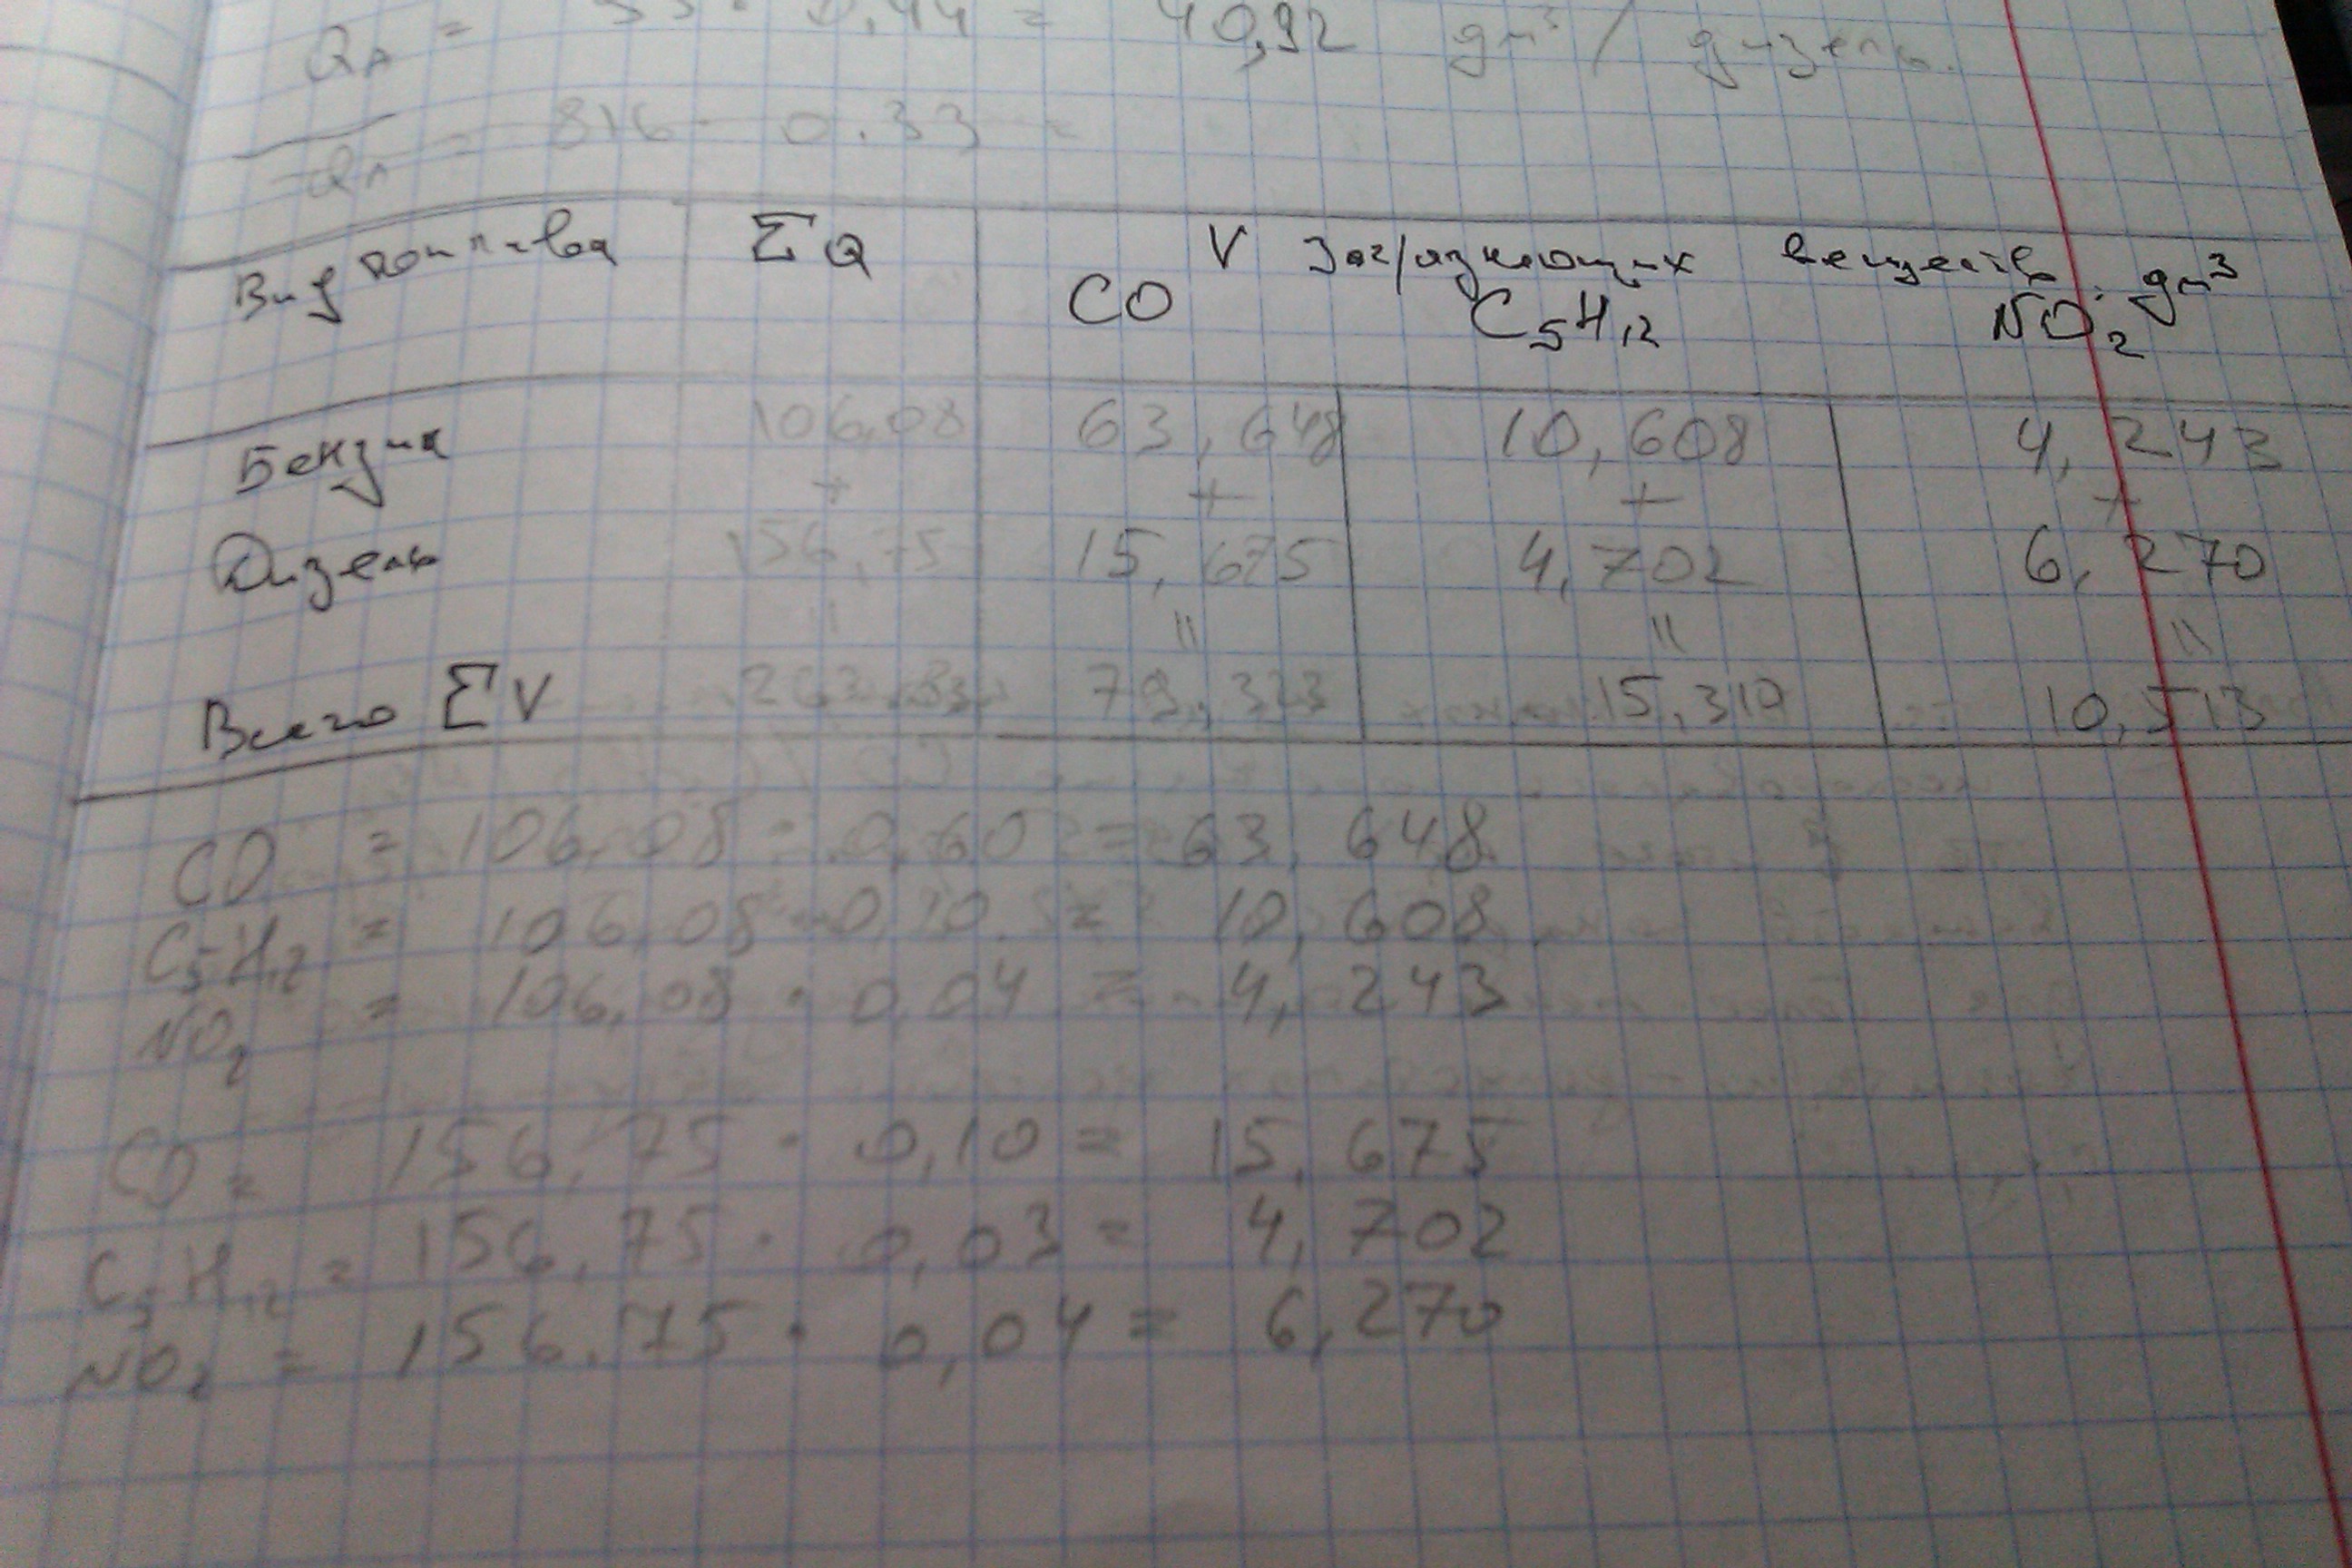 = 0,44 = 40,92 дм³ / дизель.
Qл = 816 · 0.33 =
Вид топлива ΣQ V загрязняющих веществ, дм³
CO C₅H₁₂ NO₂
Бензин 106,08 63,648 10,608 4,243
+ + + +
Дизель 156,75 15,675 4,702 6,270
= = = =
Всего ΣV 79,323 15,310 10,513
CO = 106,08 · 0,60 = 63,648
C₅H₁₂ = 106,08 · 0,10 = 10,608
NO₂ = 106,08 · 0,04 = 4,243
CO = 156,75 · 0,10 = 15,675
C₅H₁₂ = 156,75 · 0,03 = 4,702
NO₂ = 156.75 · 0,04 = 6,270